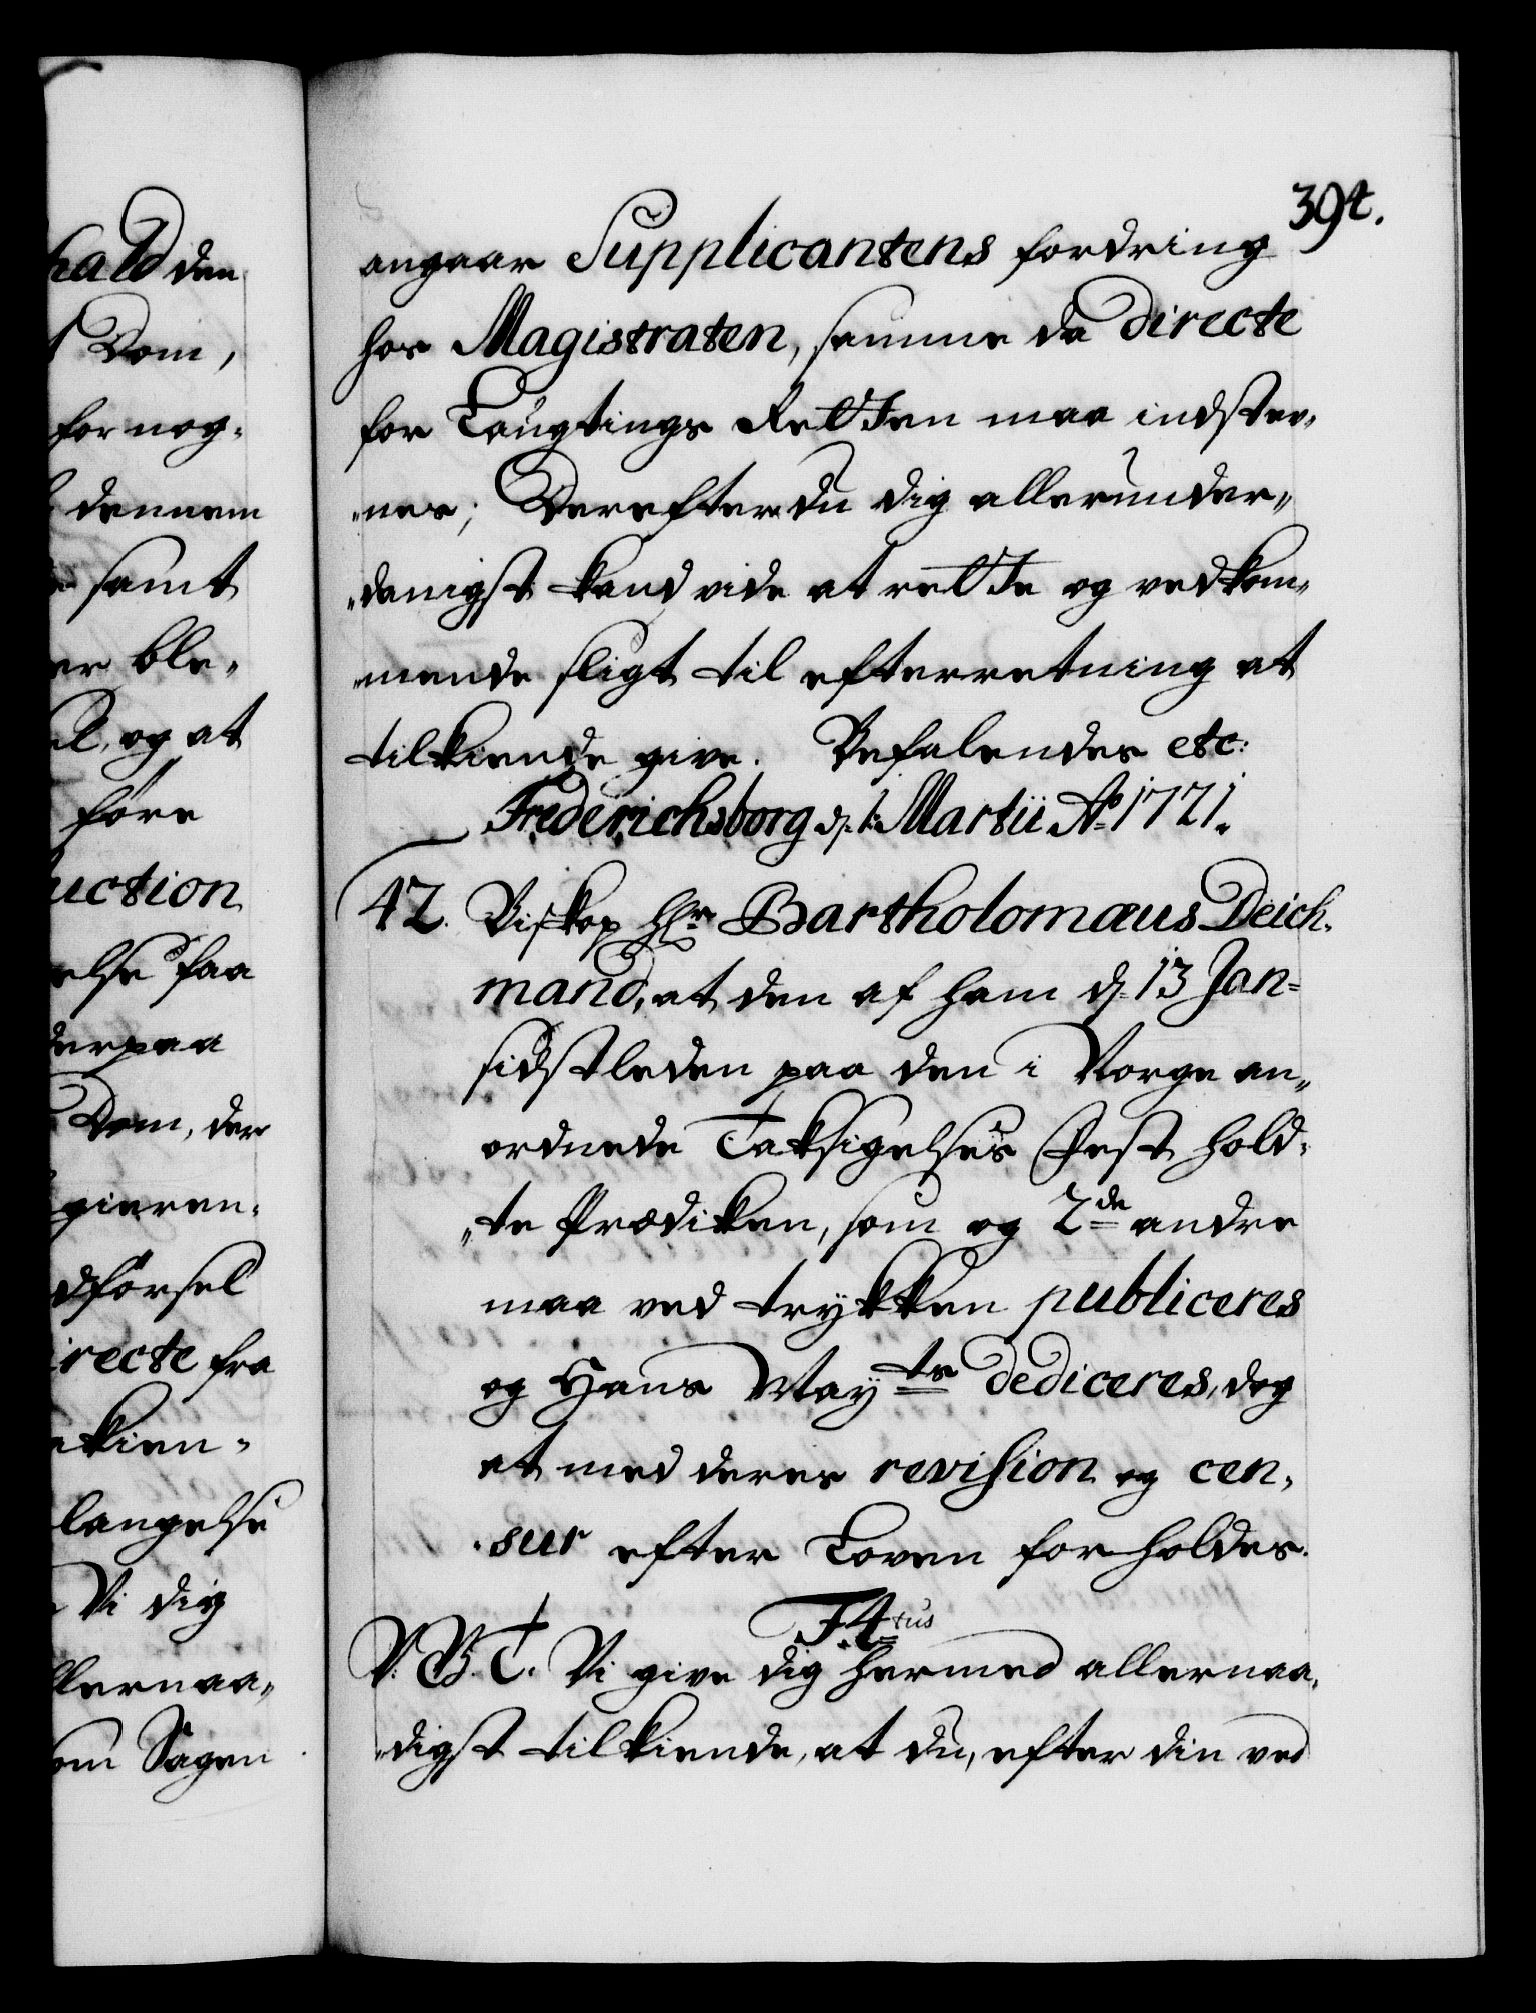 hald den
Dom,
for nog-
dennem
samt
er ble-
og at
føre
uction
else paa
derpaa
Dom, der
gieren-
dførsel
irecte fra
kien-
langelse
Vi dig
llernaa-
om Sagen
394.
angaar Supplicantens fordring
hos Magistraten, samme da directe
for Laugtings Retten maa indstev-
nes; Derefter du dig allerunder-
danigst kand vide at rette og vedkom-
mende sligt til efterretning at
tilkiende give. Befalendes etc:
Frederichsborg d: 1: Martii Ao 1721.
42. Biskop Hr Bartholomæus Deich-
mand, at den af ham d. 13 Jan-
sidstleden paa den i Norge an-
ordnede Taksigelses Fest hold-
te Prædiken, som og 2de andre
maa ved trykken publiceres
og Hans Mayts dediceres, dog
at med deres revision og cen-
sur efter Loven forholdes.
F4tus
V. G. T. Vi give dig hermed allernaa-
digst tilkiende, at du, efter din ved